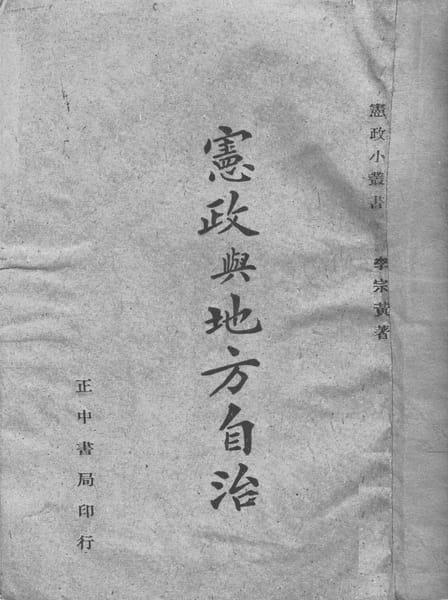 憲政小叢書
李宗黃著
憲政與地方自治
正中書局印行